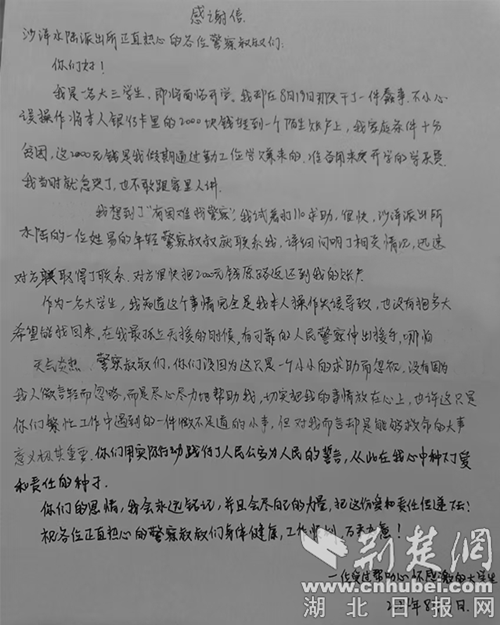 感谢信
沙洋水陆派出所正直热心的各位警察叔叔们:
你们好!
我是一名大三学生,即将面临开学。我却在8月19日那天干了一件蠢事,不小心
误操作将本人银行卡里的2000块钱转到一个陌生账户上,我家庭条件十分
贫困,这2000元钱是我假期通过勤工俭学攒来的,准备用来交开学的学杂费
我当时就急哭了,也不敢跟家里人讲.
我想到了"有困难找警察",我试着打110求助,很快,沙洋派出所
水陆的一位姓易的年轻警察叔叔就联系我,详细问明了相关情况,迅速
对方 取得了联系,对方很快把2000元钱原路返还到我的账户
作为一名大学生,我知道这个事情完全是我本人操作失误导致,也没有抱多大
希望能找回来,在我最孤立无援的时候,有可靠的人民警察伸出援手,哪怕
天气炎热,警察叔叔们,你们没因为这只是一个小小的求助而忽视,没有因为
我人微言轻而忽略,而是尽心尽力地帮助我,切实把我的事情放在心上,也许这只是
你们繁忙工作中遇到的一件微不足道的小事,但对我而言却是能够救命的大事
意义极其重要,你们用实际行动践行了人民公安为人民的誓言,从此在我心中种下了爱
和责任的种子.
你们的恩情,我会永远铭记,并且会尽自己的力量,把这份爱和责任传递下去!
祝各位正直热心的警察叔叔们身体健康,工作顺利,万事如意!
一位受过帮助心怀感激的大学生
8月 日.
荆楚网
www.cnhubei.com
湖北日报网